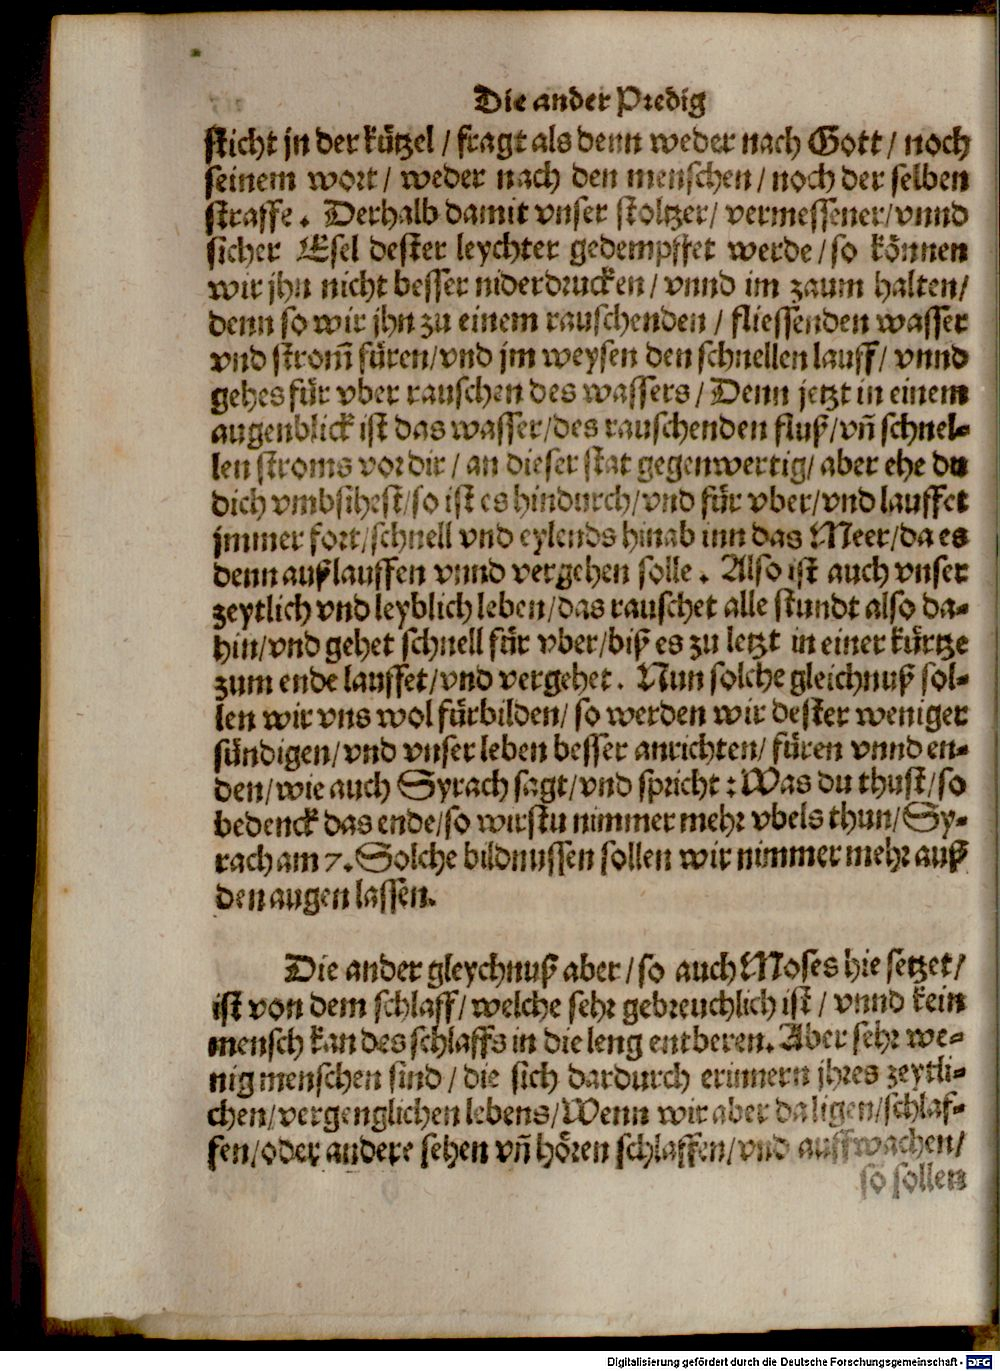 Die ander Predig
sticht jn der kützel / fragt als denn weder nach Gott / noch
seinem wort / weder nach den menschen / noch der selben
straffe. Derhalb damit vnser stoltzer / vermessener / vnnd
sicher Esel dester leychter gedempffet werde / so können
wir jhn nicht besser niderdrucken / vnnd im zaum halten /
denn so wir jhn zu einem rauschenden / fliessenden wasser
vnd strom̃ füren / vnd jm weysen den schnellen lauff / vnnd
gehes für vber rauschen des wassers / Denn jetzt in einem
augenblick ist das wasser / des rauschenden fluß / vñ schnel-
len stroms vor dir / an dieser stat gegenwertig / aber ehe du
dich vmbsihest / so ist es hindurch / vnd für vber / vnd lauffet
jmmer fort / schnell vnd eylends hinab inn das Meer / da es
denn außlauffen vnnd vergehen solle. Also ist auch vnser
zeytlich vnd leyblich leben / das rauschet alle stundt also da-
hin / vnd gehet schnell für vber / biß es zu letzt in einer kürtze
zum ende lauffet / vnd vergehet. Nun solche gleichnuß sol-
len wir vns wol fürbilden / so werden wir dester weniger
sündigen / vnd vnser leben besser anrichten / füren vnnd en-
den / wie auch Syrach sagt / vnd spricht : Was du thust / so
bedenck das ende / so wirstu nimmer mehr vbels thun / Sy-
rach am 7. Solche bildnussen sollen wir nimmer mehr auß
den augen lassen.
Die ander gleychnuß aber / so auch Moses hie setzet /
ist von dem schlaff / welche sehr gebreuchlich ist / vnnd kein
mensch kan des schlaffs in die leng entberen. Aber sehr we-
nig menschen sind / die sich dardurch erinnern jhres zeytli-
chen / vergenglichen lebens / Wenn wir aber da ligen / schlaf-
fen / oder andere sehen vñ hören schlaffen / vnd auffwachen /
so sollen
Digitalisierung gefördert durch die Deutsche Forschungsgemeinschaft - DFG